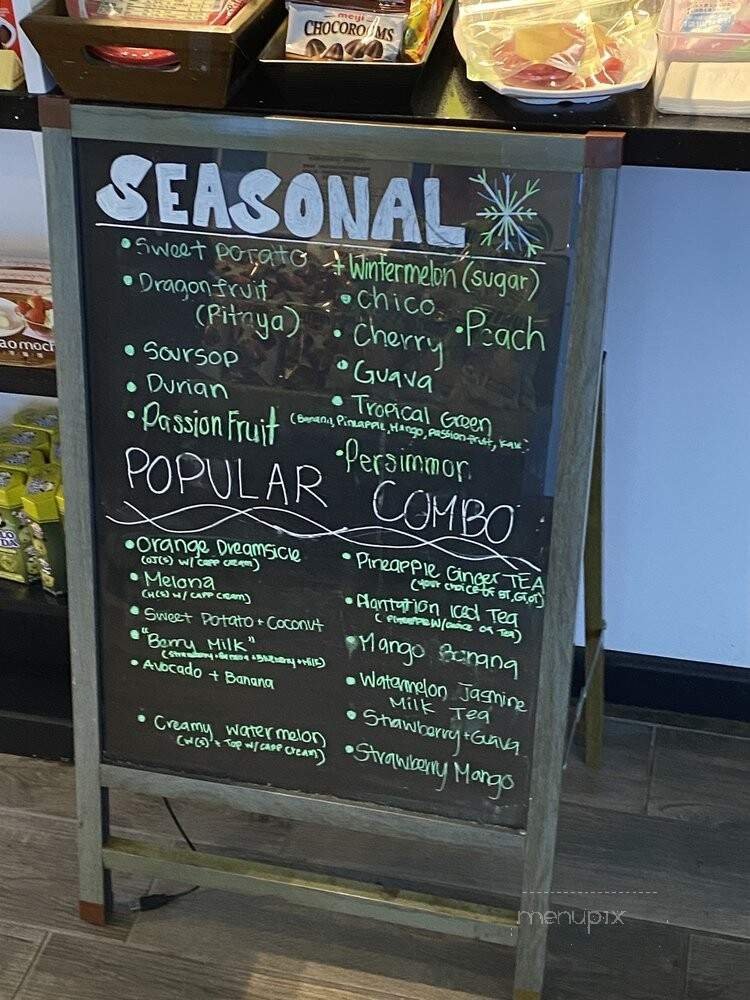 meiji
CHOCOROOMS
SEASONAL
• Sweet Potato
• Dragonfruit
(Pitaya)
• Soursop
• Durian
• Passion Fruit
+ Wintermelon (sugar)
• Chico
• Cherry
• Peach
• Guava
• Tropical Green
• Persimmon
POPULAR COMBO
• Orange Dreamsicle
(OJ(S) w/ capp cream)
• Melona
(H(S) w/ capp cream)
• Sweet Potato + Coconut
• "Berry Milk"
(Strawberry + Banana + Blueberry + Milk)
• Avocado + Banana
• Creamy watermelon
(W(S) + Top w/ capp cream)
• Pineapple Ginger TEA
(your choice of BT, GT, OT)
• Plantation Iced Tea
• Mango Banana
• Watermelon Jasmine
Milk Tea
• Strawberry + Guava
• Strawberry Mango
menupix